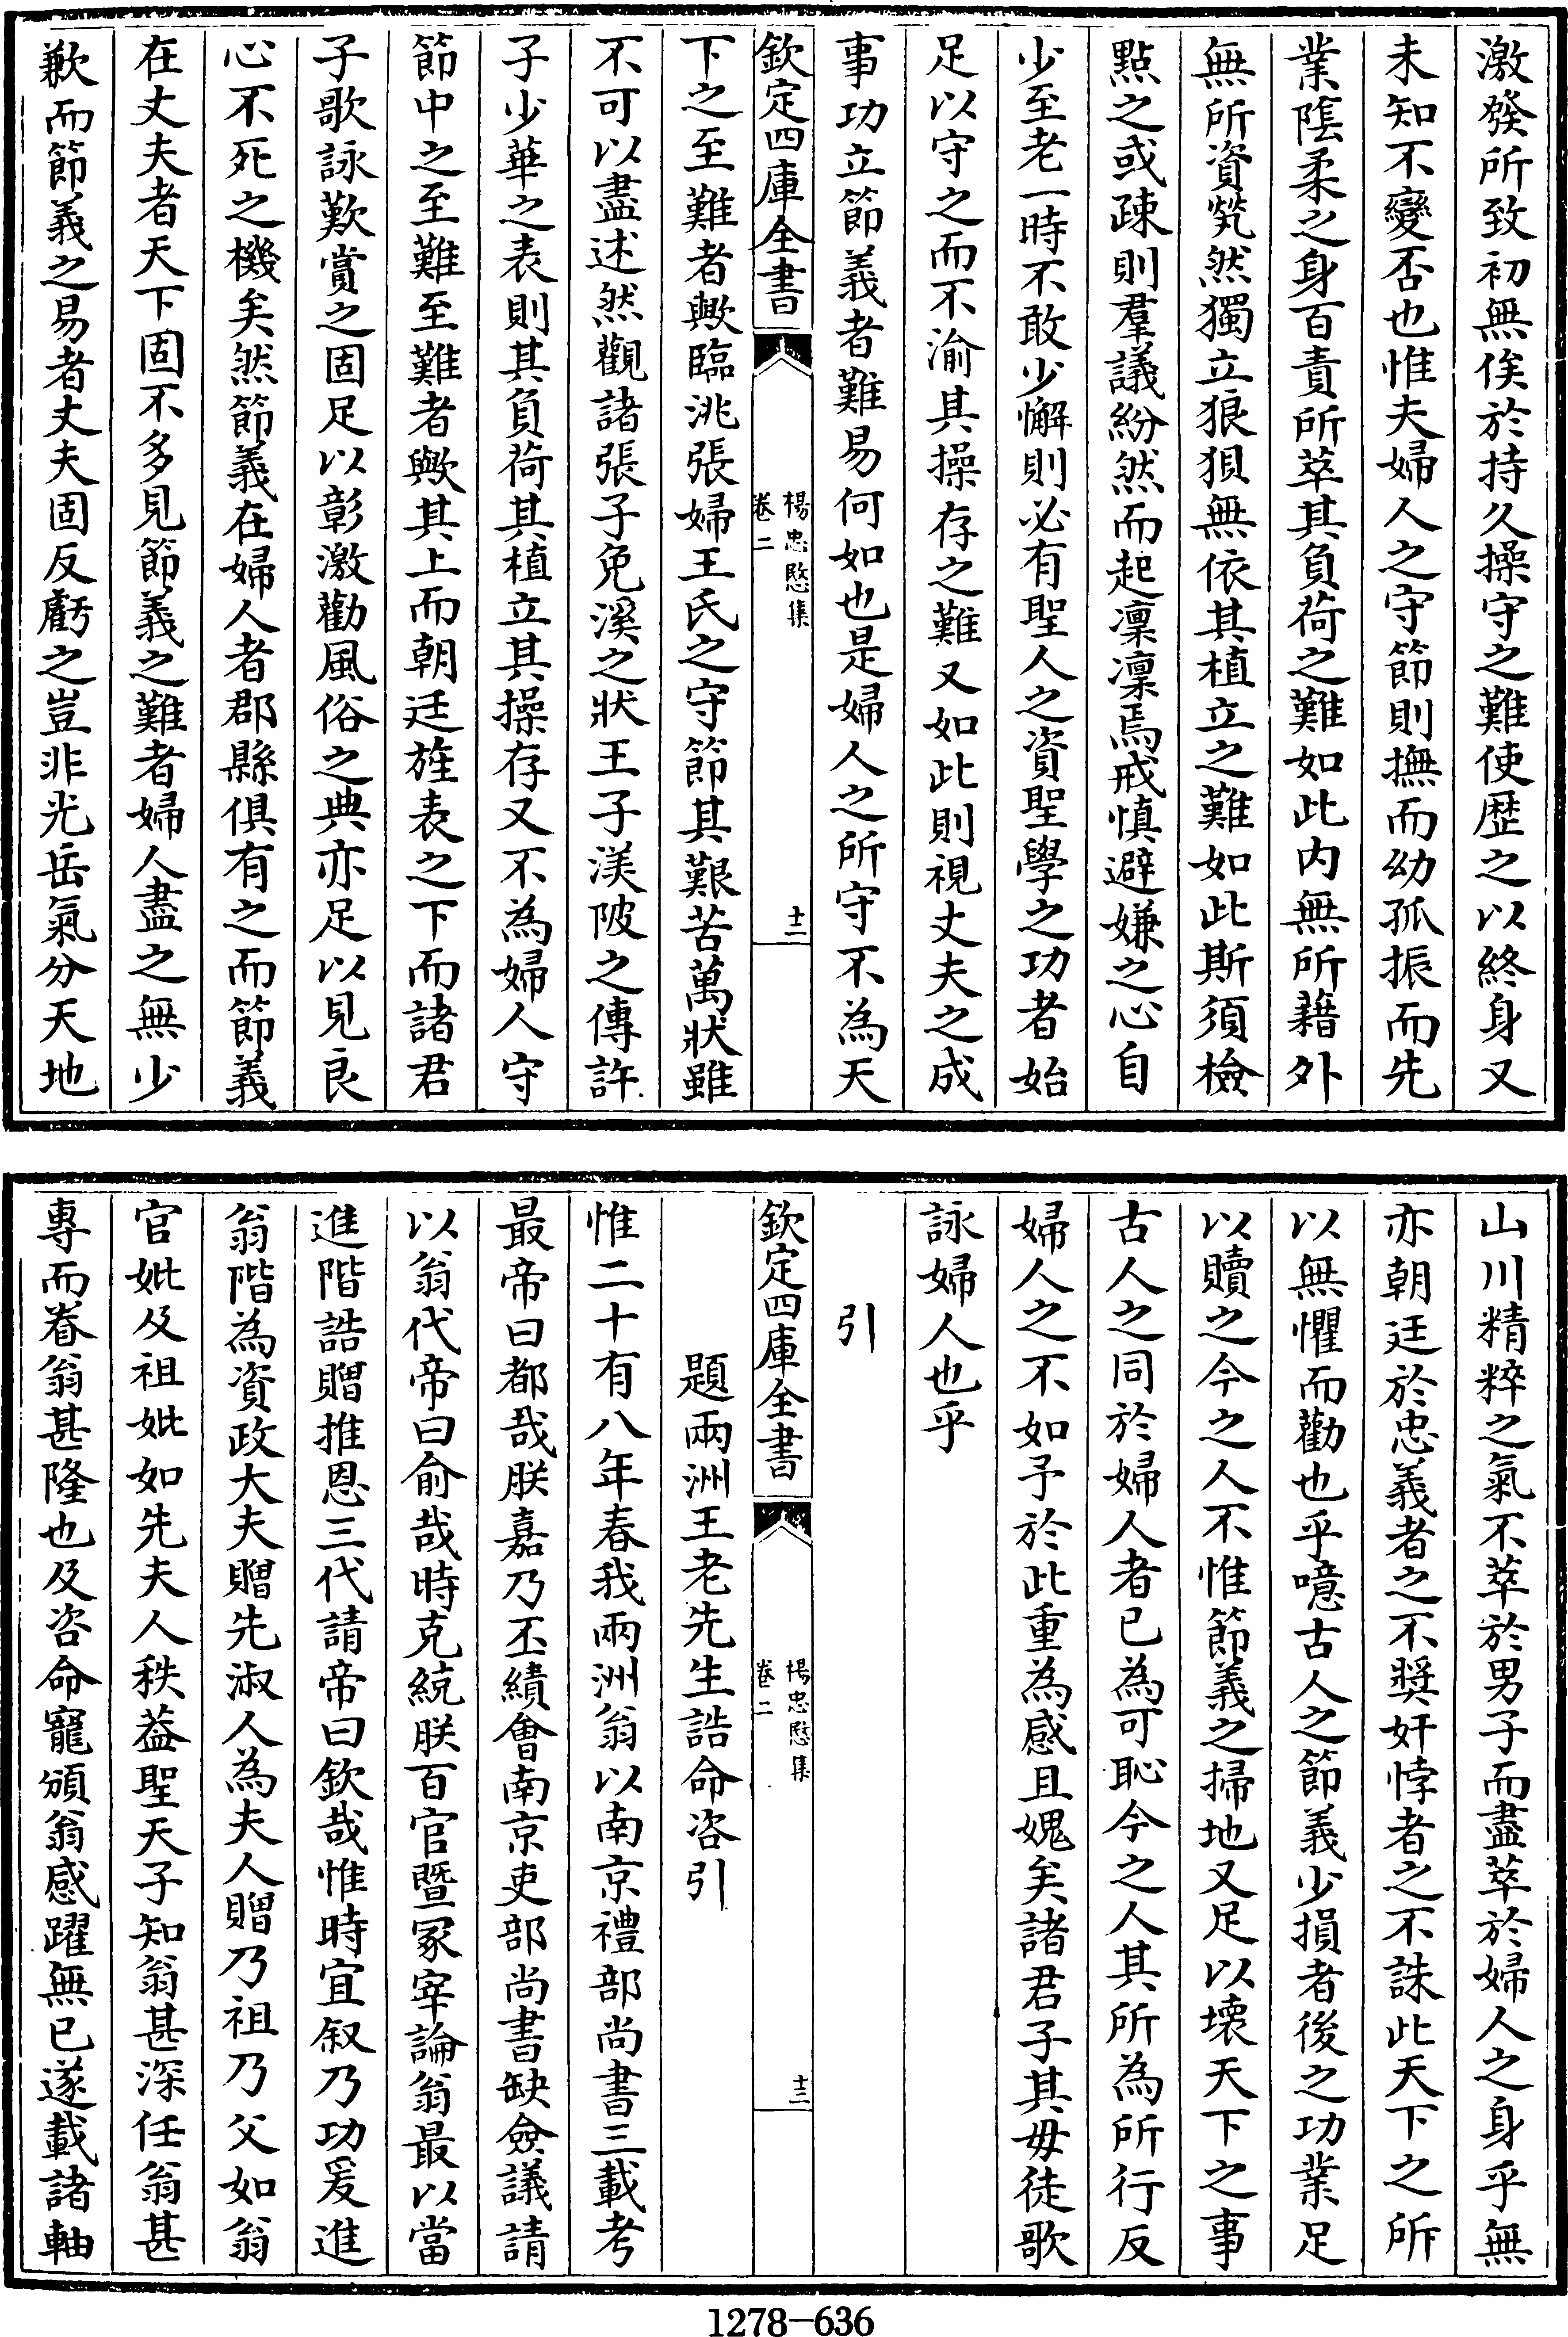 激發所致初無俟於持久操守之難使歴之以終身又
未知不變否也惟夫婦人之守節則撫而幼孤振而先
業隂柔之身百責所萃其負荷之難如此内無所藉外
無所資煢然獨立狼狽無依其植立之難如此斯須檢
點之或疎則羣議紛然而起凜凜焉戒慎避嫌之心自
少至老一時不敢少懈則必有聖人之資聖學之功者始
足以守之而不渝其操存之難又如此則視丈夫之成
事功立節義者難易何如也是婦人之所守不為天
欽定四庫全書
楊忠愍集
卷二
十二
下之至難者歟臨洮張婦王氏之守節其艱苦萬狀雖
不可以盡述然觀諸張子免溪之狀王子渼陂之傳許
子少華之表則其負荷其植立其操存又不為婦人守
節中之至難至難者歟其上而朝廷旌表之下而諸君
子歌詠歎賞之固足以彰激勸風俗之典亦足以見良
心不死之機矣然節義在婦人者郡縣俱有之而節義
在丈夫者天下固不多見節義之難者婦人盡之無少
歉而節義之易者丈夫固反虧之豈非光岳氣分天地
山川精粹之氣不萃於男子而盡萃於婦人之身乎無
亦朝廷於忠義者之不奨奸悖者之不誅此天下之所
以無懼而勸也乎噫古人之節義少損者後之功業足
以贖之今之人不惟節義之掃地又足以壊天下之事
古人之同於婦人者已為可恥今之人其所為所行反
婦人之不如予於此重為感且媿矣諸君子其毋徒歌
詠婦人也乎
引
欽定四庫全書
楊忠愍集
卷二
十三
題兩洲王老先生誥命咨引
惟二十有八年春我兩洲翁以南京禮部尚書三載考
最帝曰都哉朕嘉乃丕績會南京吏部尚書缺僉議請
以翁代帝曰俞哉時克統朕百官暨冢宰論翁最以當
進階誥贈推恩三代請帝曰欽哉惟時宜叙乃功爰進
翁階為資政大夫贈先淑人為夫人贈乃祖乃父如翁
官妣及祖妣如先夫人秩葢聖天子知翁甚深任翁甚
專而眷翁甚隆也及咨命寵頒翁感躍無已遂載諸軸
1278-636